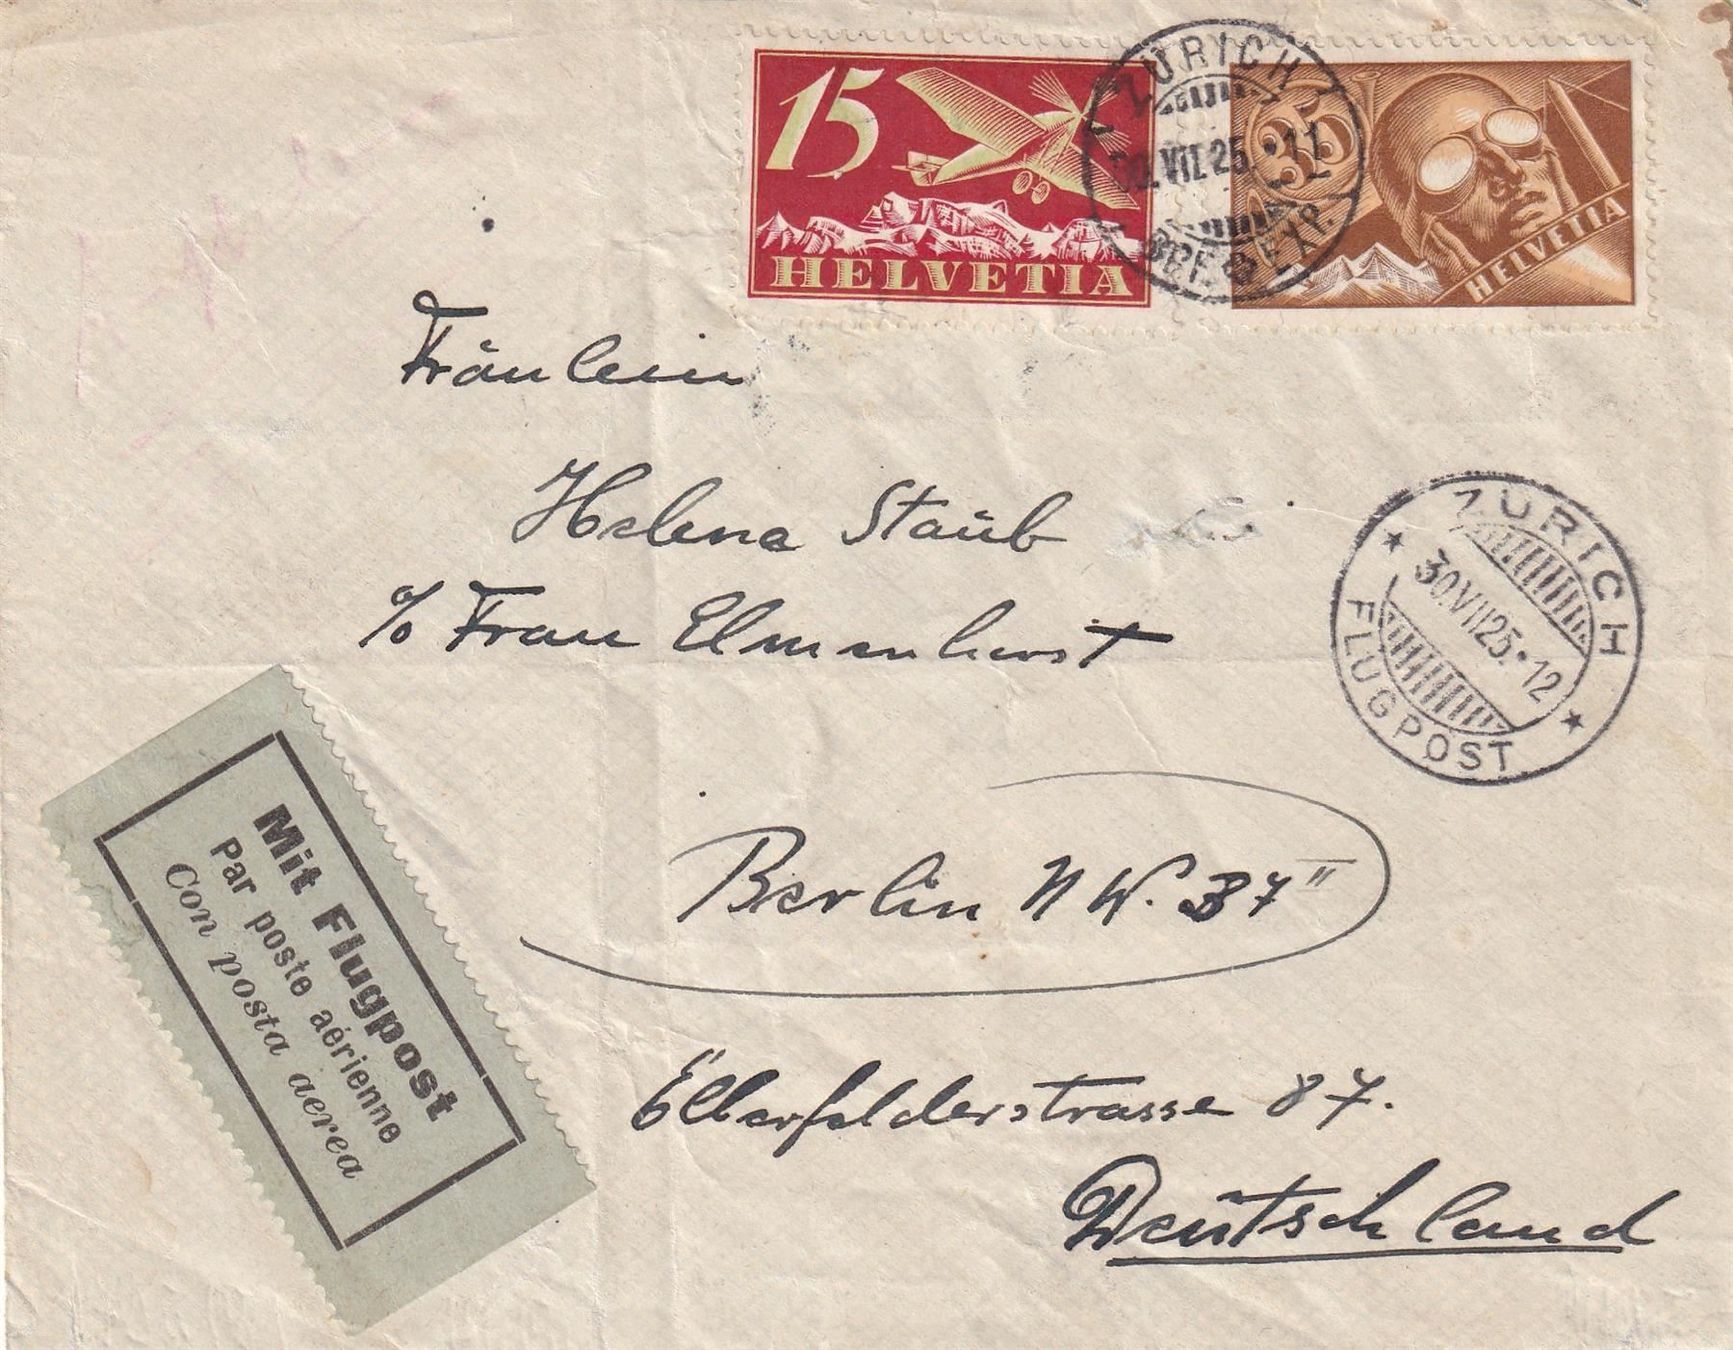 15
HELVETIA
35
HELVETIA
ZÜRICH
30.VII.25.•11
BRF. EXP.
Fräulein
Helena Staub
c/o Frau Elmenhorst
ZÜRICH
30.VII25.•12
FLUGPOST
Berlin NW. 87"
Elberfelderstrasse 87.
Deutschland
Mit Flugpost
Par poste aérienne
Con posta aerea